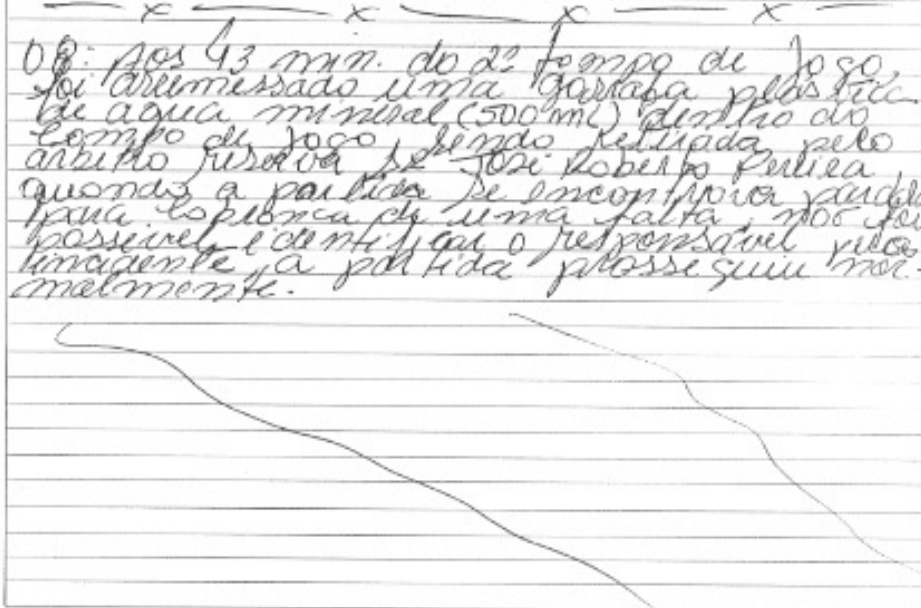 — x — x — x — x —
08: Aos 43 min. do 2º tempo de jogo,
foi arremessado uma garrafa plástica
de agua mineral (500 ml) dentro do
campo de jogo, sendo retirada pelo
árbitro reserva Sr José Roberto Pereira
quando a partida se encontrava parada
para cobranca de uma falta, não foi
possivel identificar o responsável pelo
incidente a partida prosseguiu nor-
malmente.